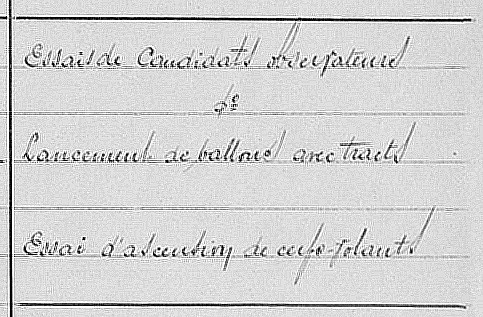 Essais de Candidats observateurs
do
Lancement de ballons avec tracts
Essai d'ascension de cerfs-volants